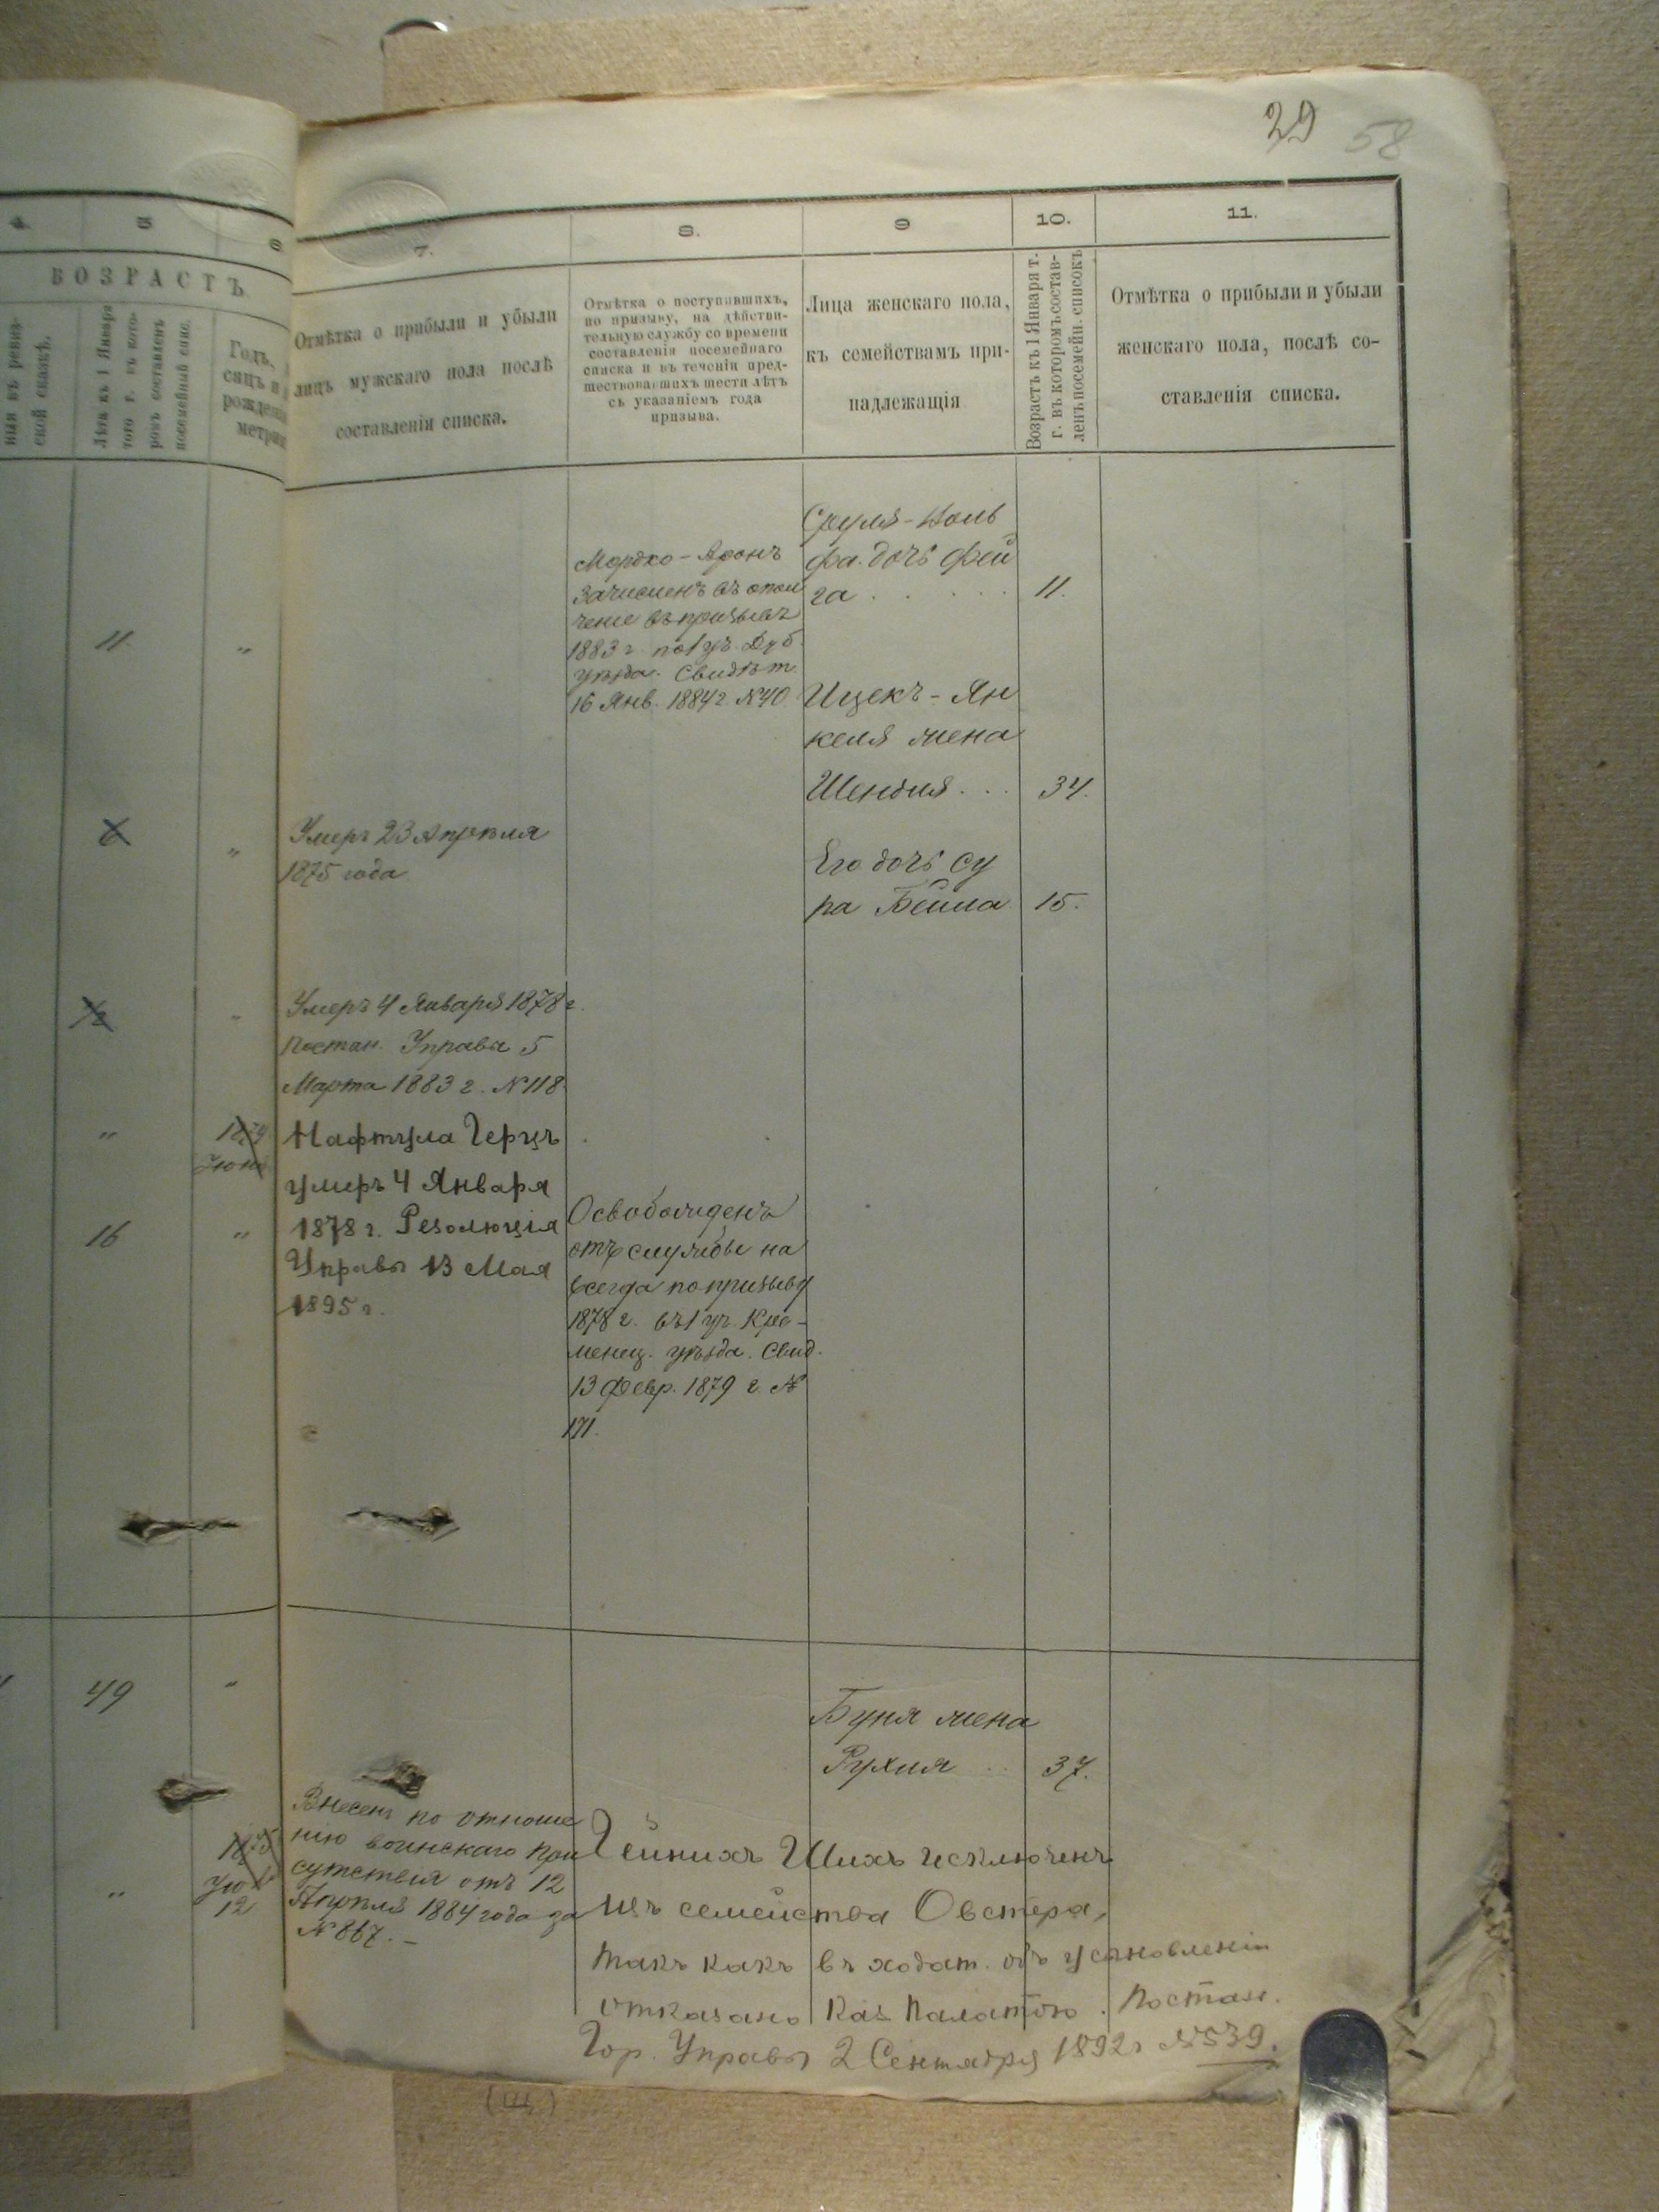 29 58
4. 5 6
ВОЗРАСТЪ
7. 8. 9 10. 11.
Отмѣтка о прибыли и убыли
лицъ мужскаго пола послѣ
составленія списка.
Отмѣтка о поступившихъ,
по призыву, на дѣйстви-
тельную службу со времени
составленія посемейнаго
списка и въ теченіи пред-
шествовавшихъ шести лѣтъ
съ указаніемъ года
призыва.
Лица женскаго пола,
къ семействамъ при-
надлежащія
Возрастъ къ 1 Января т.
г. въ которомъ состав-
ленъ посемейн. списокъ
Отмѣтка о прибыли и убыли
женскаго пола, послѣ со-
ставленія списка.
11. "
Мордко-Аронъ
зачисленъ въ опол
ченіе въ призывъ
1883 г. по 1 уч. Дуб.
уѣзда. Свидѣт.
16 Янв. 1884 г. №40
Сруля-Воль
фа дочь Фей
га . . . . . 11.
Ицекъ-Ян
келя жена
Шендля . . . 34.
"
Умеръ 23 Апрѣля
1875 года
Его дочь Су
ра Бейла 15.
Умеръ 4 Января 1878 г.
Постан. Управы 5
Марта 1883 г. №118
"
Нафтула Герцъ
умеръ 4 Января
1878 г. Резолюція
Управы 13 Мая
1895 г.
16 "
Освобожденъ
отъ службы на
всегда по призыву
1878 г. въ 1 уч. Кре-
менец. уѣзда. Свид.
13 Февр. 1879 г. №
171.
49 "
Буня жена
Рухля . . 37.
" 12
Внесенъ по отноше
нію воинскаго при
сутствія отъ 12
Апрѣля 1884 года за
№ 867. –
Гейнихъ Шихъ исключенъ
изъ семейства Овстера,
такъ какъ въ ходат. объ установленіи
отказано Каз. Палатою. Постан.
Гор. Управы 2 Сентября 1892 г №539.